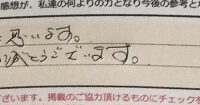 感想が、私達の何よりの力となり今後の参考と
思います。
うございます。
ざいます。掲載のご協力頂けるものにチェックを